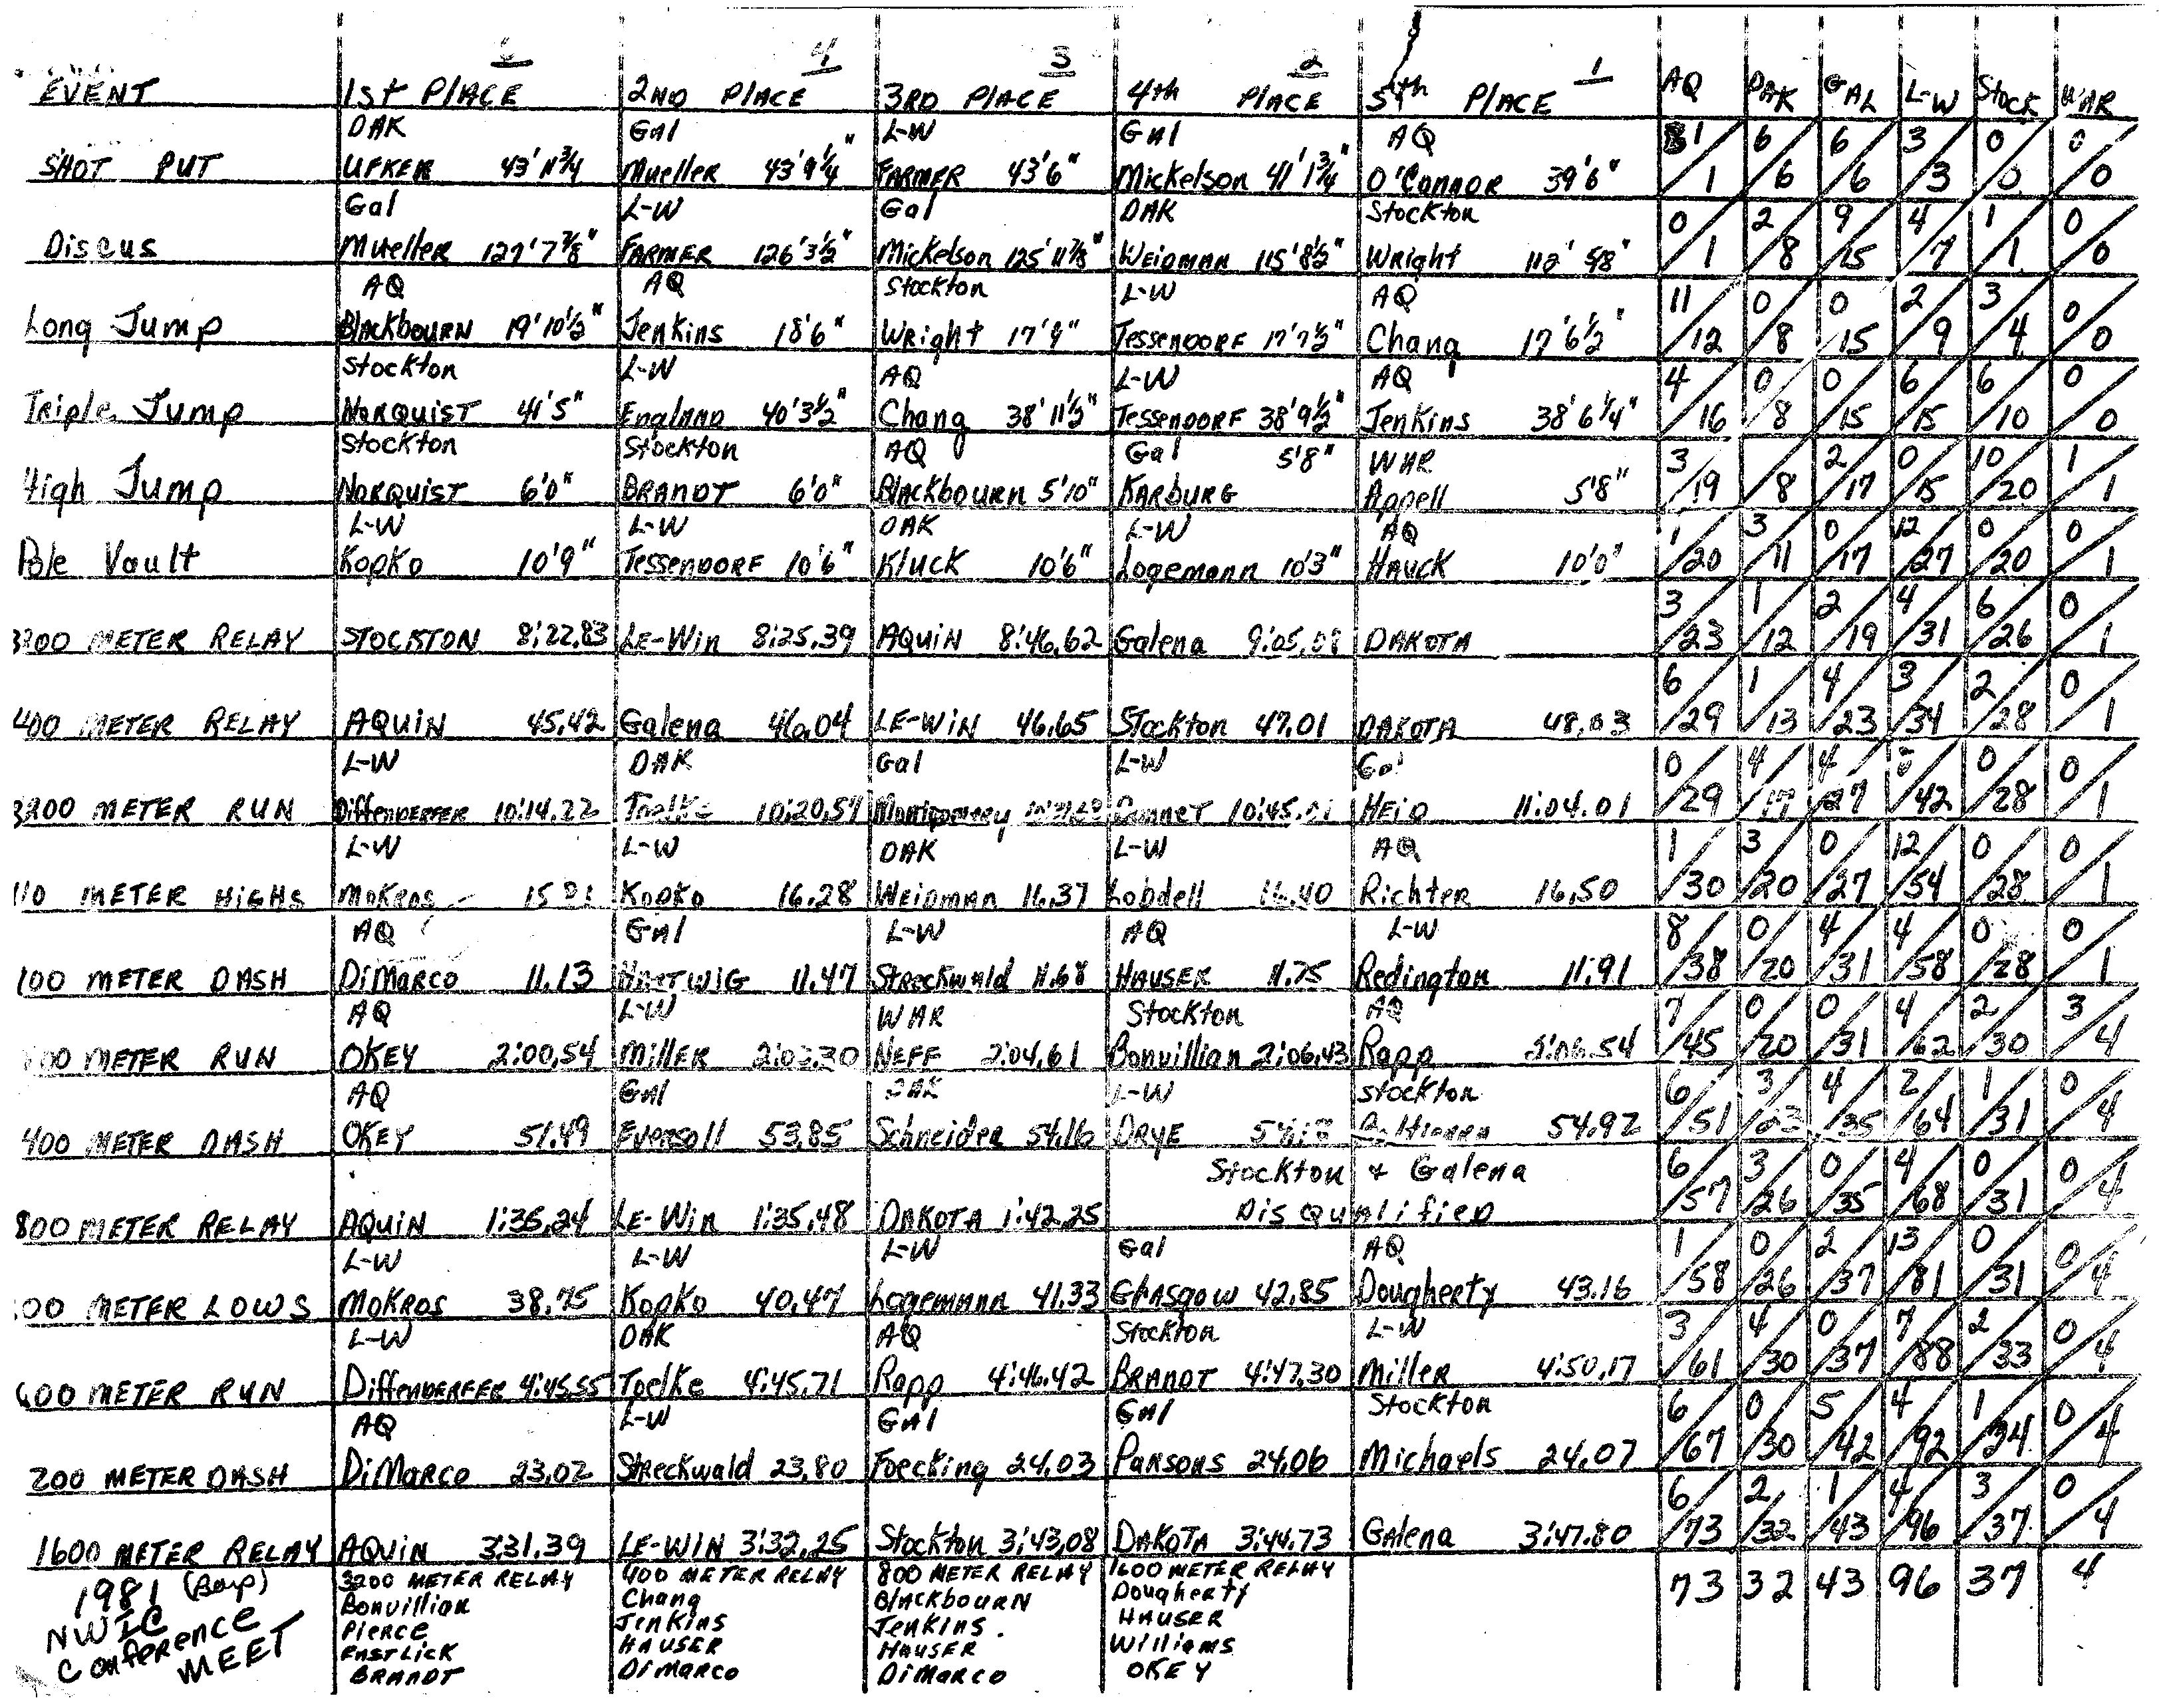 6 4 3 2 1
EVENT 1st PlACE 2ND PlACE 3RD PlACE 4th PlACE 5th PlACE AQ DAK GAL L-W Stock WAR
DAK GAl L-W GAl AQ 1 6 6 3 0 0
SHOT PUT UFKEN 43' 11 3/4 Mueller 43' 9 1/4" FARMER 43'6" Mickelson 41' 1 3/4" O'CONNOR 39'6" 1 6 6 3 0 0
Gal L-W Gal DAK Stockton 0 2 9 4 1 0
Discus Mueller 127' 7 7/8" FARMER 126' 3 1/2" Mickelson 125' 11 7/8" WEIDMAN 115' 8 1/2" Wright 112' 5/8" 1 8 15 7 1 0
AQ AQ Stockton L-W AQ 11 0 0 2 3 0
Long Jump BlackbourN 19' 10 1/2" Jenkins 18'6" Wright 17'9" TessenDORF 17' 7 1/2" Chang 17' 6 1/2" 12 8 15 9 4 0
Stockton L-W AQ L-W AQ 4 0 0 6 6 0
Triple Jump NORQUIST 41'5" EnglAND 40' 3 1/2" Chang 38' 11 1/2" TessenDORF 38' 9 1/2" Jenkins 38' 6 1/4" 16 8 15 15 10 0
Stockton Stockton AQ Gal 5'8" WAR 3 2 0 10 1
High Jump NORQUIST 6'0" BRANDT 6'0" Blackbourn 5'10" KARBURG Appell 5'8" 19 8 17 15 20 1
L-W L-W DAK L-W AQ 1 3 0 12 0 0
Pole Vault KopKo 10'9" TessenDORF 10'6" Kluck 10'6" Logemann 10'3" HAUCK 10'0" 20 11 17 27 20 1
3 1 2 4 6 0
3200 METER RELAY STOCKTON 8:22.83 LE-Win 8:25.39 AQUIN 8:46.62 Galena DAKOTA 23 12 19 31 26 1
6 1 4 3 2 0
400 METER RELAY AQUIN 45.42 Galena 46.04 LE-WIN 46.65 Stockton 47.01 DAKOTA 48.03 29 13 23 34 28 1
L-W DAK Gal L-W Gal 0 4 4 0 0
3200 METER RUN DiffenDERFER 10:14.22 Toelke 10:20.57 Montgomery 10:45.01 HEID 11:04.01 29 17 27 42 28 1
L-W L-W DAK L-W AQ 1 3 0 12 0 0
110 METER HIGHS MOKROS KopKo 16.28 WEIDMAN 16.37 Lobdell 16.40 Richter 16.50 30 20 27 54 28 1
AQ GAl L-W AQ L-W 8 0 4 4 0 0
100 METER DASH DiMARCO 11.13 HARTWIG 11.47 Streckwald 11.68 HAUSER 11.75 Redington 11.91 38 20 31 58 28 1
AQ L-W WAR Stockton AQ 7 0 0 4 2 3
800 METER RUN OKEY 2:00.54 MillER 2:03.30 NEFF 2:04.61 Bonvillian 2:06.43 Rapp 2:06.54 45 20 31 62 30 4
AQ GAl DAK L-W Stockton 6 3 4 2 1 0
400 METER DASH OKEY 51.49 Eversoll 53.85 Schneider 54.16 DRYE 54.92 51 23 35 64 31 4
Stockton & Galena 6 3 0 4 0 0
800 METER RELAY AQUIN 1:35.24 LE-Win 1:35.48 DAKOTA 1:42.25 DisQualified 57 26 35 68 31 4
L-W L-W L-W Gal AQ 1 0 2 13 0 0
00 METER LOWS MOKROS 38.75 KopKo 40.47 Logemann 41.33 GlASgow 42.85 Dougherty 43.16 58 26 37 81 31 4
L-W DAK AQ Stockton L-W 3 4 0 7 2 0
600 METER RUN DiffenDERFER 4:45.55 Toelke 4:45.71 Rapp 4:46.42 BRANDT 4:47.30 Miller 4:50.17 61 30 37 88 33 4
AQ L-W GAl GAl Stockton 6 0 5 4 1 0
200 METER DASH DiMARCO 23.02 Streckwald 23.80 Foecking 24.03 PARSONS 24.06 Michaels 24.07 67 30 42 92 34 4
6 2 1 4 3 0
1600 METER RELAY AQUIN 3:31.39 LE-WIN 3:32.25 Stockton 3:43.08 DAKOTA 3:44.73 GAlena 3:47.80 73 32 43 96 37 4
3200 METER RELAY 400 METER RELAY 800 METER RELAY 1600 METER RELAY 73 32 43 96 37 4
1981 (Boys) Bonvillian Chang BlackbourN Dougherty
NWIC Pierce Jenkins Jenkins. HAUSER
Conference EASTLICK HAUSER HAUSER Williams
MEET BRANDT DiMARCO DiMARCO OKEY